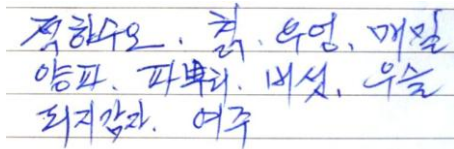 적하수오. 칡. 우엉. 메밀
양파. 파뿌리. 버섯. 우슬
되지감자. 여주